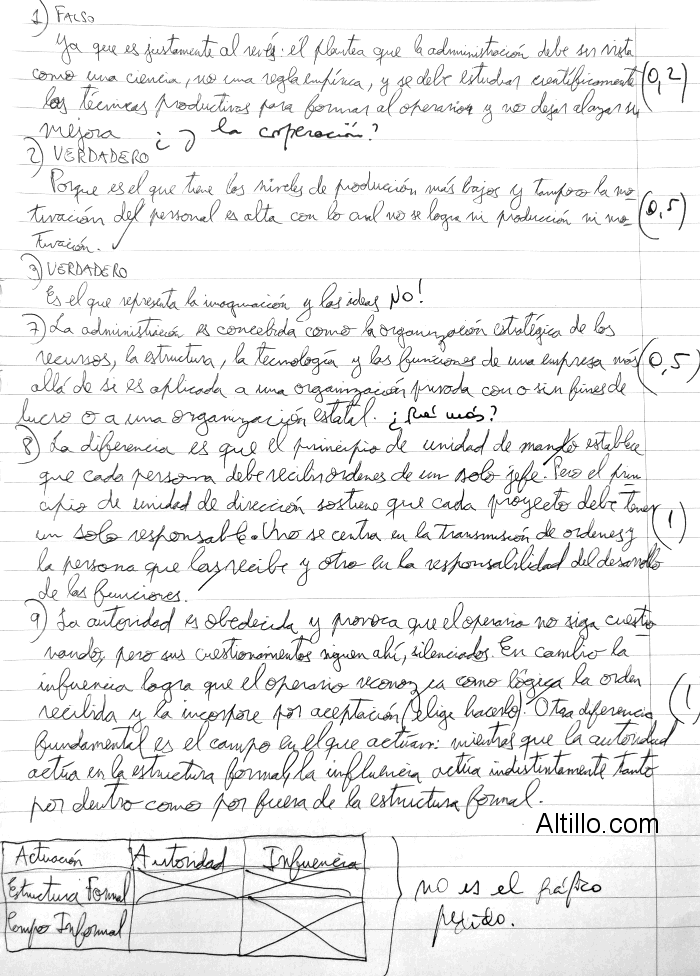 1) FALSO
Ya que es justamente al revés: él plantea que la administración debe ser vista
como una ciencia, no una regla empírica, y se debe estudiar científicamente (0,2)
las técnicas productivas para formar al operario y no dejar al azar su
mejora ¿ y la coperación?
2) VERDADERO
Porque es el que tiene los niveles de producción más bajos y tampoco la mo-
tivación del personal es alta con lo cual no se logra ni producción ni mo- (0,5)
tivación.
3) VERDADERO
Es el que representa la imaginación y las ideas NO!
7) La administración es concebida como la organización estratégica de los
recursos, la estructura, la tecnología y las funciones de una empresa más (0,5)
allá de si es aplicada a una organización privada con o sin fines de
lucro o a una organización estatal. ¿Qué más?
8) La diferencia es que el principio de unidad de mando establece
que cada persona debe recibir ordenes de un solo jefe. Pero el prin-
cipio de unidad de dirección sostiene que cada proyecto debe tener
un solo responsable. Uno se centra en la transmisión de ordenes y (1)
la persona que las recibe y otro en la responsabilidad del desarrollo
de las funciones.
9) La autoridad es obedecida y provoca que el operario no siga cuestio
nando, pero sus cuestionamientos siguen ahí, silenciados. En cambio la
influencia logra que el operario reconozca como lógica la orden (1
recibida y la incorpore por aceptación (elige hacerlo). Otra diferencia
fundamental es el campo en el que actúan: mientras que la autoridad
actúa en la estructura formal, la influencia actúa indistintamente tanto
por dentro como por fuera de la estructura formal.
Altillo.com
Actuación Autoridad Influencia
Estructura Formal
Campo Informal
no es el gráfico
pedido.